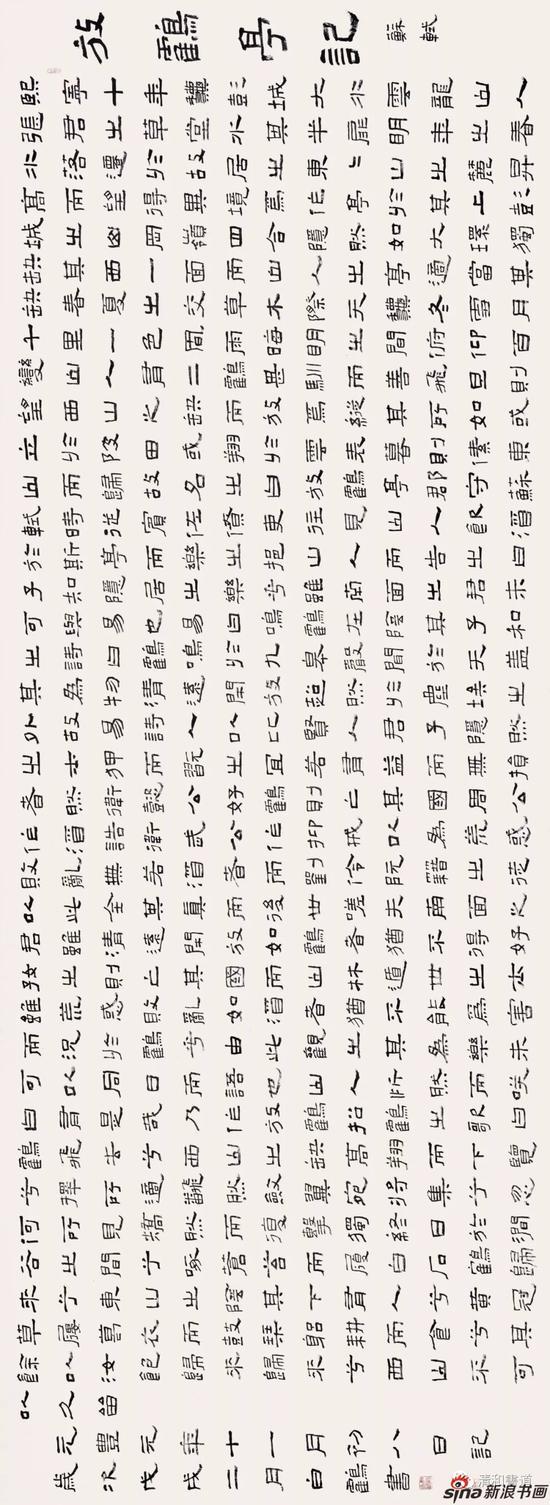 放鶴亭記 蘇軾
熙寧十年穐彭城大水雲龍山人
張君之草堂水其半扉明年之春
水落遷於故居之東二山之麓昇
高而望得異境焉作亭於其上彭
城之山岡嶺四合隱然如大環獨
缺其西一面而山人之亭適當其
缺春夏之交草木際天穐冬雪月
千里一色風雨晦明之間俯仰百
變山人有二鶴甚馴而善飛旦則
望西山之缺而放焉縱其所如或
立於陂田或翔於雲表暮則傃東
山而歸故名之曰放鶴亭郡守蘇
軾時從賓佐僚吏往見山人飲酒
於斯亭而樂之挹山人而告之曰
子知隱居之樂乎雖南面之君未
可與易也易曰鳴鶴在陰其子和
之詩曰鶴鳴于九皋聲聞于天蓋
其為物清遠閒放超然於塵埃之
外故易詩人以比賢人君子隱德
之士狎而玩之宜若有益而無損
者然衛懿公好鶴則亡其國周公
作酒誥衛武公作抑戒以為荒惑
敗亂無若酒者而劉伶阮籍之徒
以此全其真而名後世嗟夫南面
君雖清遠閒放如鶴者猶不得好
好之則亡其國而山林遁世之士
雖荒惑敗亂如酒者猶不能為害
而況於鶴乎由此觀之其為樂未
可以同日而語也山人忻然而咲
曰有是哉乃作放鶴招鶴之歌曰
鶴飛去兮西山之缺高翔而下覽
兮擇所適翻然斂翼宛將集兮忽
何所見矯然而復擊獨終日於澗
谷之間兮啄蒼苔而履白石鶴歸
來兮東山之陰其下有人兮黃冠
草屨葛衣而鼓琴躬耕而食兮其
餘以汝飽歸來歸來兮西山不可
以久留
元豐元年十一月初八日記
歲次戊戌二月白鶴書
清和書道
sina新浪书画